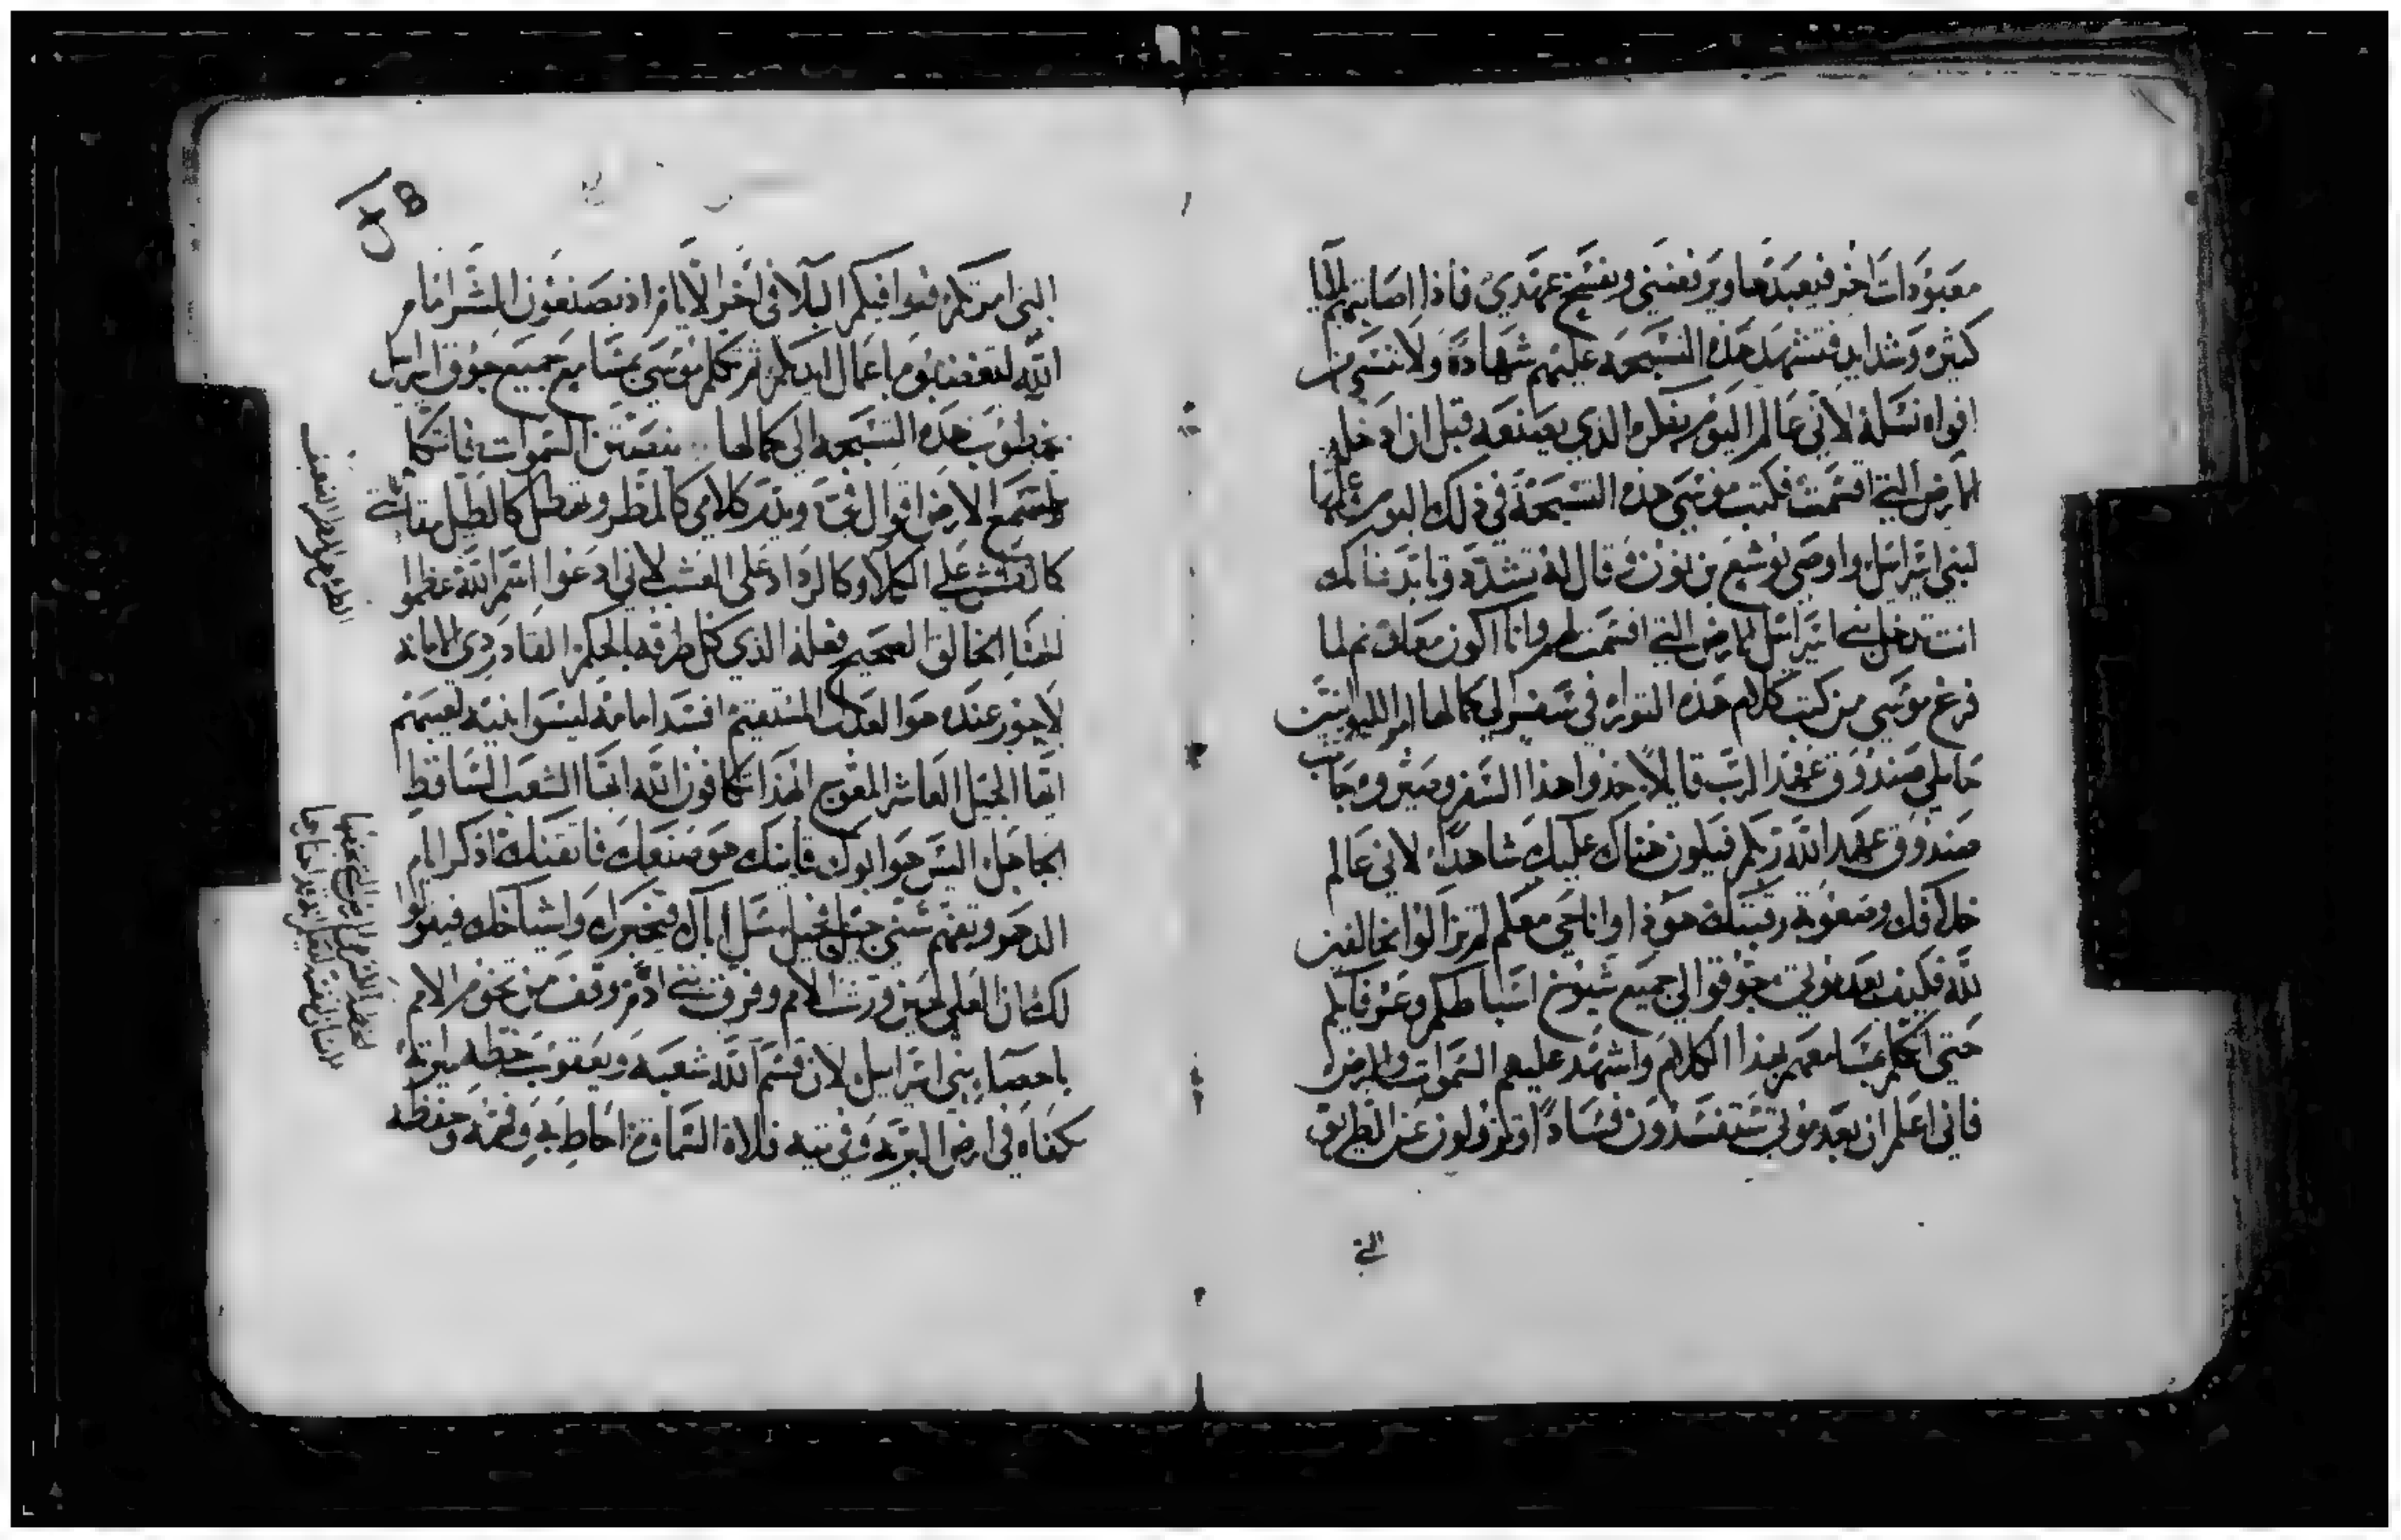 معبودات اخر فيعبدها ويرفضني ويفسخ عهدي فاذا اصابتهم بلايا
كثيره وشدايد فتشهد هذه التسبحه عليهم شهادة ولا تنسى من
افواه نسله لاني عالم اليوم بفكره الذي يصنعه قبل ان ادخله
الارض التي اقسمت فكتب موسى هذه التسبحة في ذلك اليوم وعلمها
لبني اسرايل واوصى يوشع بن نون وقال له تشدد وتايد فانك
انت تدخل بني اسرايل الارض التي اقسمت لهم وانا اكون معك ثم لما
فرغ موسى من كتب كلام هذه التوراه في سفر الى كمالها امر الليوانيين
حاملي صندوق عهد الرب قايلا خذوا هذا السفر وصيروه بجانب
صندوق عهد الله ربكم فيكون هناك عليك شاهدا لاني عالم
خلافك وصعوبة رقبتك هوذا وانا حي معكم لم تزالوا مخالفين
لله فكيف بعد موتي جوقوا الي جميع شيوخ اسباطكم وعرفايكم
حتى اتكلم بمسامعهم بهذا الكلام واشهد عليهم السموات والارض
فاني اعلم ان بعد موتي ستفسدون فسادا وتزولون عن الطريق
التي
التي امرتكم فيوافيكم البلا في اخر الايام اذ تصنعون الشر امام
الله لتغضبوه باعمال ايديكم ثم تكلم موسى بمسامع جميع جوق اسرايل
بخطوب هذه التسبحه الى كمالها ينصتن السموات فاتكلم
ولتسمع الارض اقوال في ويندر كلامي كالمطر وتهطل كالطل مقالتي
كالغشش على الكلا وكالرذاذ على العشب لاني ادعوا اسم الله عظموا
لالهنا الخالق الصحيح فعله الذي كل طرقه بالحكم القادر ذي الامانه
لا جور عنده هوا العدل المستقيم افسد امامه ليسوا بنيه لعيبهم
ايها الجيل العاشر المعوج ابهذا تكافون الله ايها الشعب الساقط
الجاهل اليس هوا ابوك قاينك هو صنعك فاتقنك اذكر ايام
الدهر وتفهم سني جيل فجيل سل اباك فيخبرك واشياخك فيقولوا
لك ان العلي حين ورث الامم وفرق بني ادم وقف من تخوم الامم
باحصاء بني اسرايل لان قسم الله شعبه ويعقوب خطه ميراثه
كفاه في ارض البريه وفي تيه فلاة السماوة احاط به وفهمه وحفظه